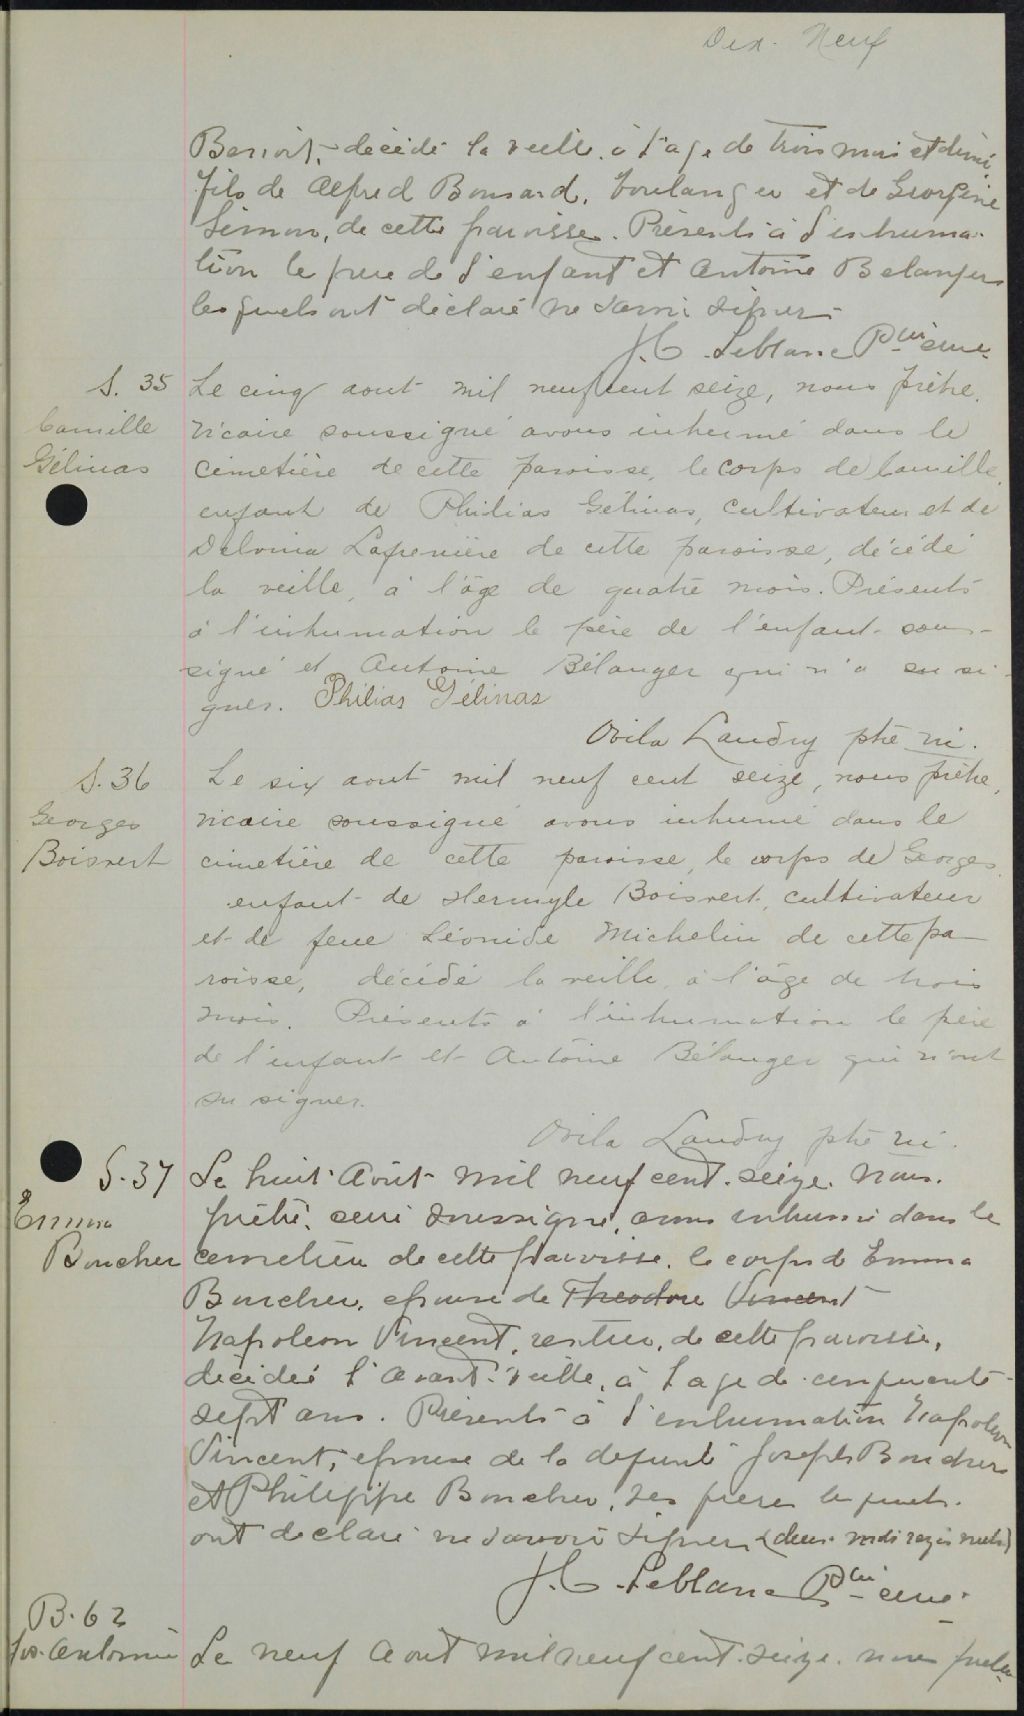 Dix-Neuf
Benoit, décédé la veille, à l'age de trois mois et demi
fils de Alfred Bonsard, boulanger et de Georgine
Simon, de cette paroisse. Présents à l'inhuma-
tion le père de l'enfant et Antoine Belanger
lesquels ont déclaré ne savoir signer.
J.C. Leblanc Ptre curé.
S. 35
Camille
Gélinas
Le cinq aout mil neuf cent seize, nous prêtre,
vicaire soussigné avons inhumé dans le
cimetière de cette paroisse, le corps de Camille,
enfant de Philias Gélinas, cultivateur et de
Delvina Lafrenière de cette paroisse, décédé
la veille, à l'âge de quatre mois. Présents
à l'inhumation le père de l'enfant sous-
signé et Antoine Bélanger qui n'a su si-
gner. Philias Gélinas
Ovila Landry ptre vic.
S. 36
Georges
Boisvert
Le six aout mil neuf cent seize, nous prêtre,
vicaire soussigné avons inhumé dans le
cimetière de cette paroisse, le corps de Georges,
enfant de Hermyle Boisvert, cultivateur
et de feue Léonide Michelin de cette pa-
roisse, décédé la veille, à l'âge de trois
mois. Présents à l'inhumation le père
de l'enfant et Antoine Bélanger qui n'ont
su signer.
Ovila Landry ptre vic.
S. 37
Emma
Boucher
Le huit Août mil neuf cent seize. Nous.
prêtre, curé soussigné, avons inhumé dans le
cemetière de cette paroisse, le corps de Emma
Boucher, épouse de Theodore Vincent
Napoleon Vincent, rentier, de cette paroisse,
décédée l'avant-veille, à l'age de cinquante-
sept ans. Présents à l'inhumation Napoleon
Vincent, épouse de la defunte Joseph Boucher
et Philippe Boucher, ses freres lesquels
ont declaré ne savoir signer (deux mots rayés nuls)
J.C. Leblanc Ptre curé.
B. 62
Jos. Antonin
Le neuf Aout mil neuf cent seize. nous pretre